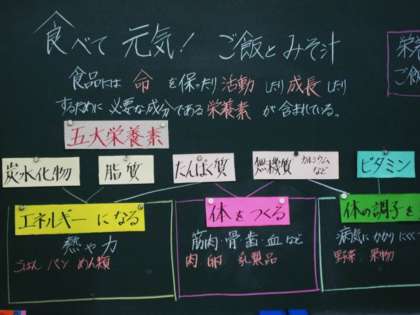 食べて 元気! ご飯とみそ汁
栄
ご
食品には 命 を保ったり 活動 したり 成長 したり
するために 必要な成分である 栄養素 が 含まれている。
五大栄養素
炭水化物
脂質
たんぱく質
無機質 カルシウムなど
ビタミン
エネルギーになる
熱や力
ごはん パン めん類
体をつくる
筋肉・骨・歯・血 など
肉 卵 乳製品
体の調子を
病気にかかりにくく
野菜 果物